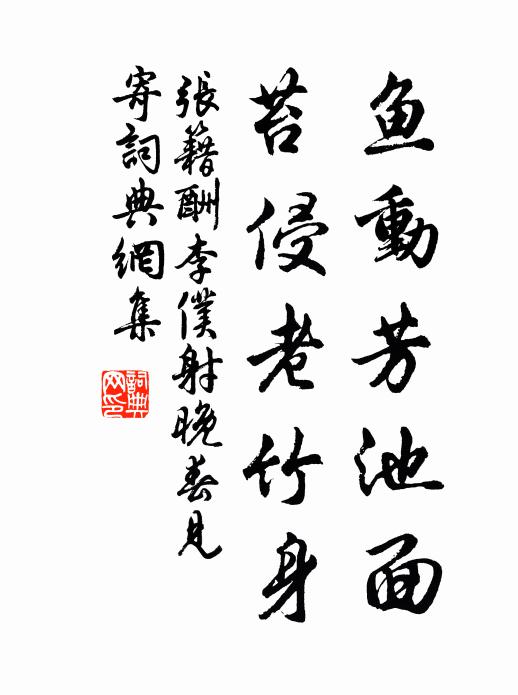 鱼動芳池面
苔侵老竹身
張籍酬李僕射晚春見
寄詞典網集
詞典
网印